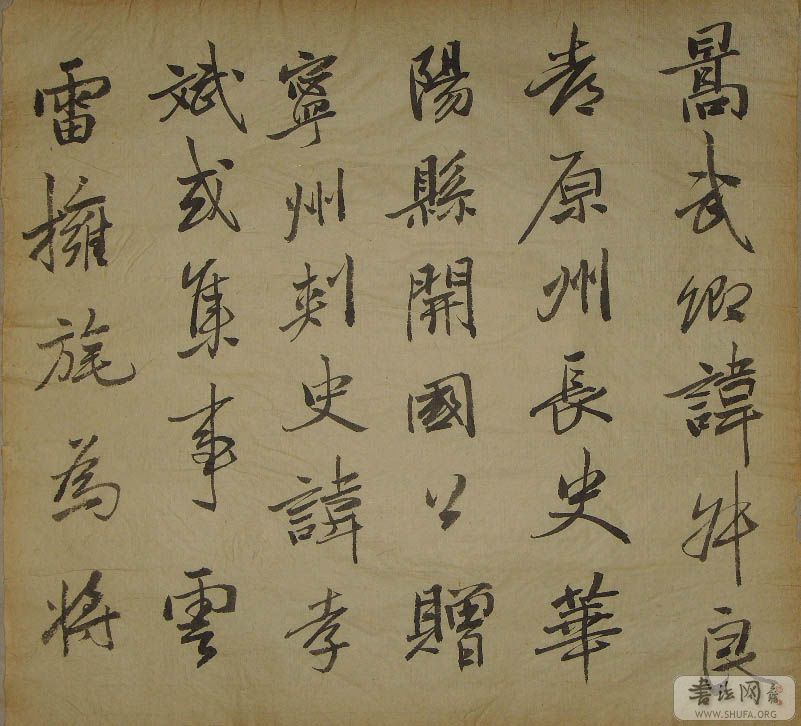 暠武卿諱叔良
考原州長史華
陽縣開國公贈
寧州刺史諱孝
斌或集事雲
雷擁旄為將
书法网
WWW.SHUFA.ORG